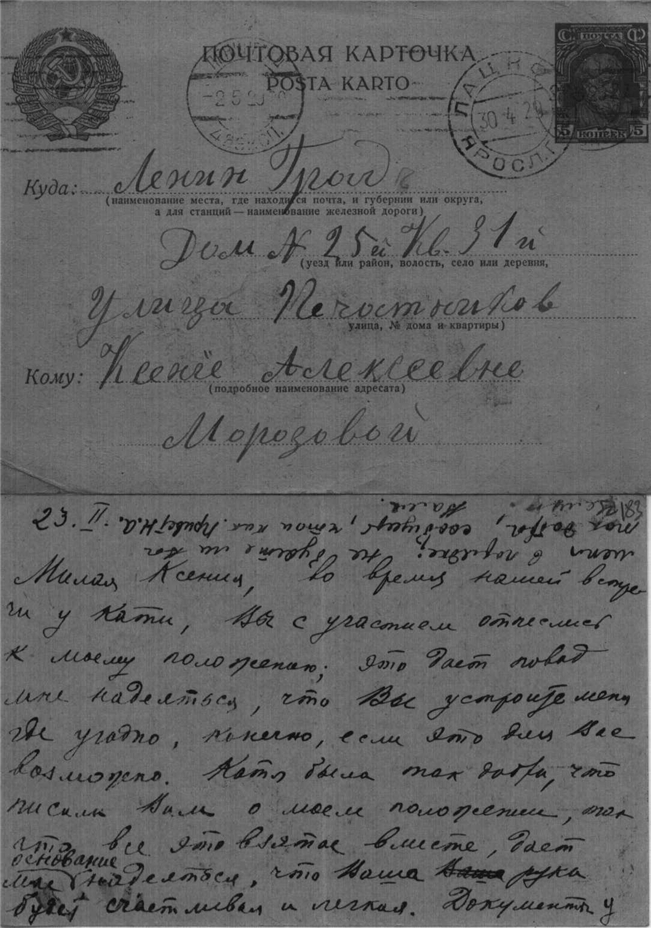 ПОЧТОВАЯ КАРТОЧКА
POSTA KARTO
ПОЧТА
5 КОПЕЕК 5
30 4 29
ЯРОСЛ.Г
Куда: Ленин Град
(наименование места, где находится почта, и губернии или округа,
а для станций — наименование железной дороги)
Дом N 25й Кв. 31й
(уезд или район, волость, село или деревня,
Улица Печатников
улица, № дома и квартиры)
Кому: Ксенiе Алексеевне
(подробное наименование адресата)
Морозовой
23. II.
Милая Ксения, во время нашей встре-
чи у Кати, Вы с участием отнеслись
к моему положению; это дает повод
мне надеяться, что Вы устроите меня
где угодно, конечно, если это для Вас
возможно. Катя была так добра, что
писала Вам о моем положении, так
что все это взятое вместе, дает
основание
мне надеяться, что Ваша рука
будет счастливая и легкая. Документы у
меня в порядке; не будете ли Вы
так добры, сообщить, что и как. Привет Н.А.